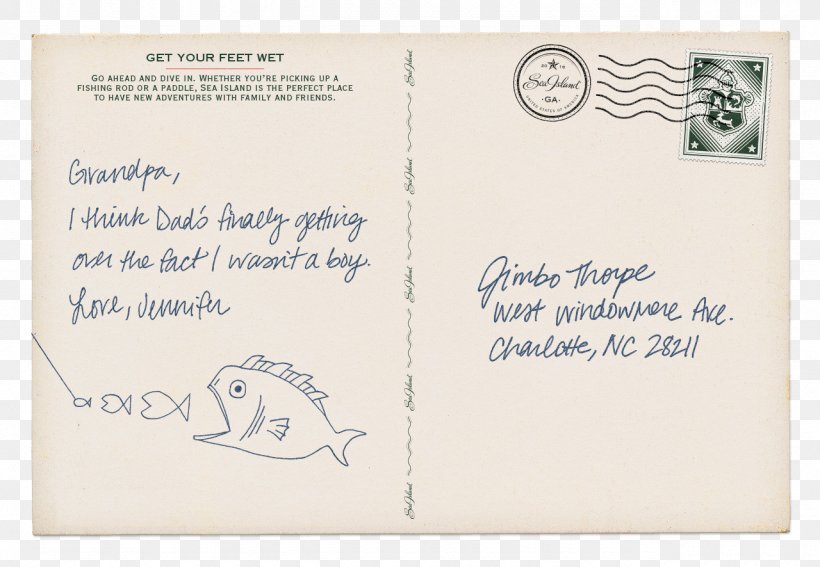 GET YOUR FEET WET
GO AHEAD AND DIVE IN. WHETHER YOU'RE PICKING UP A
FISHING ROD OR A PADDLE, SEA ISLAND IS THE PERFECT PLACE
TO HAVE NEW ADVENTURES WITH FAMILY AND FRIENDS.
Grandpa,
I think Dad's finally getting
over the fact I wasn't a boy.
Love, Jennifer
Sea Island
Sea Island
Sea Island
Sea Island
Sea Island
Sea Island
2016
Sea Island
·GA·
UNITED STATES OF AMERICA
Jimbo Thorpe
West Windowmere Ave.
Charlotte, NC 28211